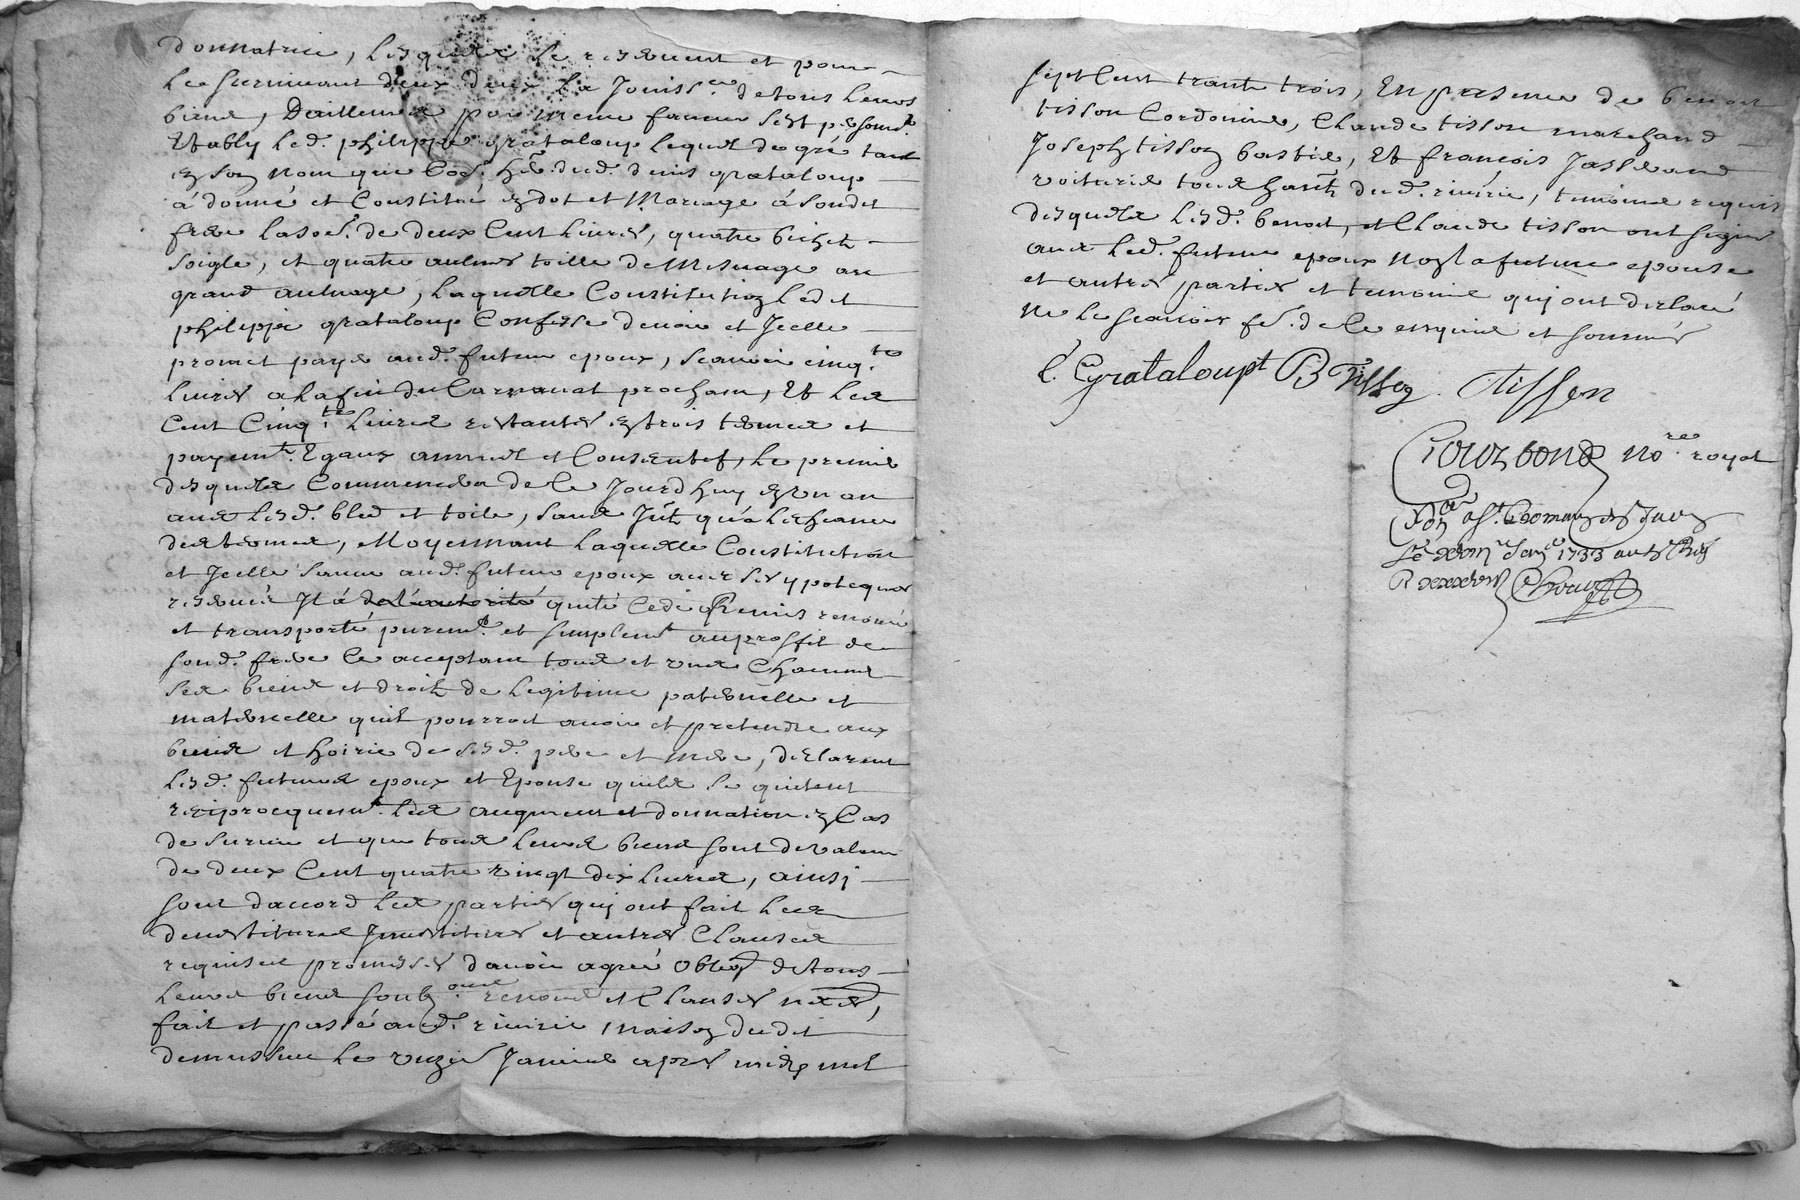 donnatrice, lesquels se reservent et pour
le survivant deux deux la Jouiss.ce de tous leurs
biens, Dailleurs par meme faveur sest p~sonl.t
Estably led. philippe grataloup lequel de gré tant
en son nom que Coe. he. dud. denis grataloup
à donné et Constitué en dot et Mariage à sondit
frere la so.e de deux Cent livres, quatre bichets
soigle, et quatre aulnes toille de Mesnage au
grand aulnage, laquelle Constitution ledit
philippe grataloup Confesse devoir et Jcelle
promet payer aud. futeur epoux, scavoir cinq.te
livres a la fin du Carnavat prochain, Et les
Cent Cinq.te livres restantes en trois termes et
payemts. Egaux annuels et Consecutifs, le premier
desquels Commencera de Ce Jourdhuy en un an
avec lesd. bled et toile, sans Jnt. qu'a lecheance
des termes, Moyennant laquelle Constitution
et Jcelle sauve aud. futeur epoux avec ses ypotecques
reservées Jl à de l'autorité quité Cedé Remis renoncé
et transporté puremt. et simplemt. au proffit de
sond. frere Ce acceptant tous et uns Chacuns
ses biens et droits de legitime paternelle et
maternelle quil pourroit avoir et pretendre aux
biens et hoirie de sesd. pere et mere, declarent
lesd. futeurs epoux et Epouse quils se quittent
reciprocquemt. les augment et donnation en Cas
de survie et que tous leurs biens sont de valeur
de deux Cent quatre vingt dix livres, ainsi
sont daccord les parties qui ont fait les
devestitures Jnvestitures et autres Clauses
requises promesses davoir agreé oblig.on de tous
leurs biens soub.ons renon.ce et Clauses nex.res,
fait et passé aud. riverie maison dudit
demussieu le unze Janvier apres midy mil
sept Cent trante trois, En presence de benoit
tisson Cordonnier, Claude tisson marchand
Joseph tisson bastier, Et francois Jasserand
voiturier tous hants. dud. riverie, temoins requis
desquels lesd. benoit, et Claude tisson ont signé
avec led. futeur epoux Non la future epouse
et autres parties et temoins qui ont declaré
ne le scavoir fe. de Ce enquis et sommés
C. Grataloupt B Tisson. C tisson
no.re royal
1733